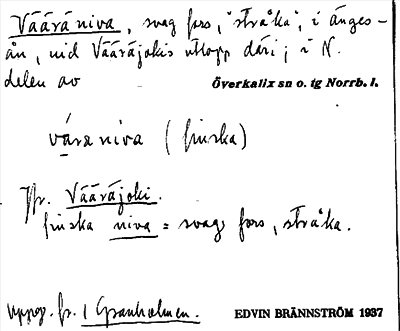 Vääräniva, svag fors, "stråka", i Änges-
ån, vid Vääräjokis utlopp däri; i N.
delen av Överkalix sn o. tg Norrb. l.
väraniva (finska)
Jfr. Vääräjoki.
finska niva = svag fors, stråka.
uppg. fr. 1 Granholmen. EDVIN BRÄNNSTRÖM 1937